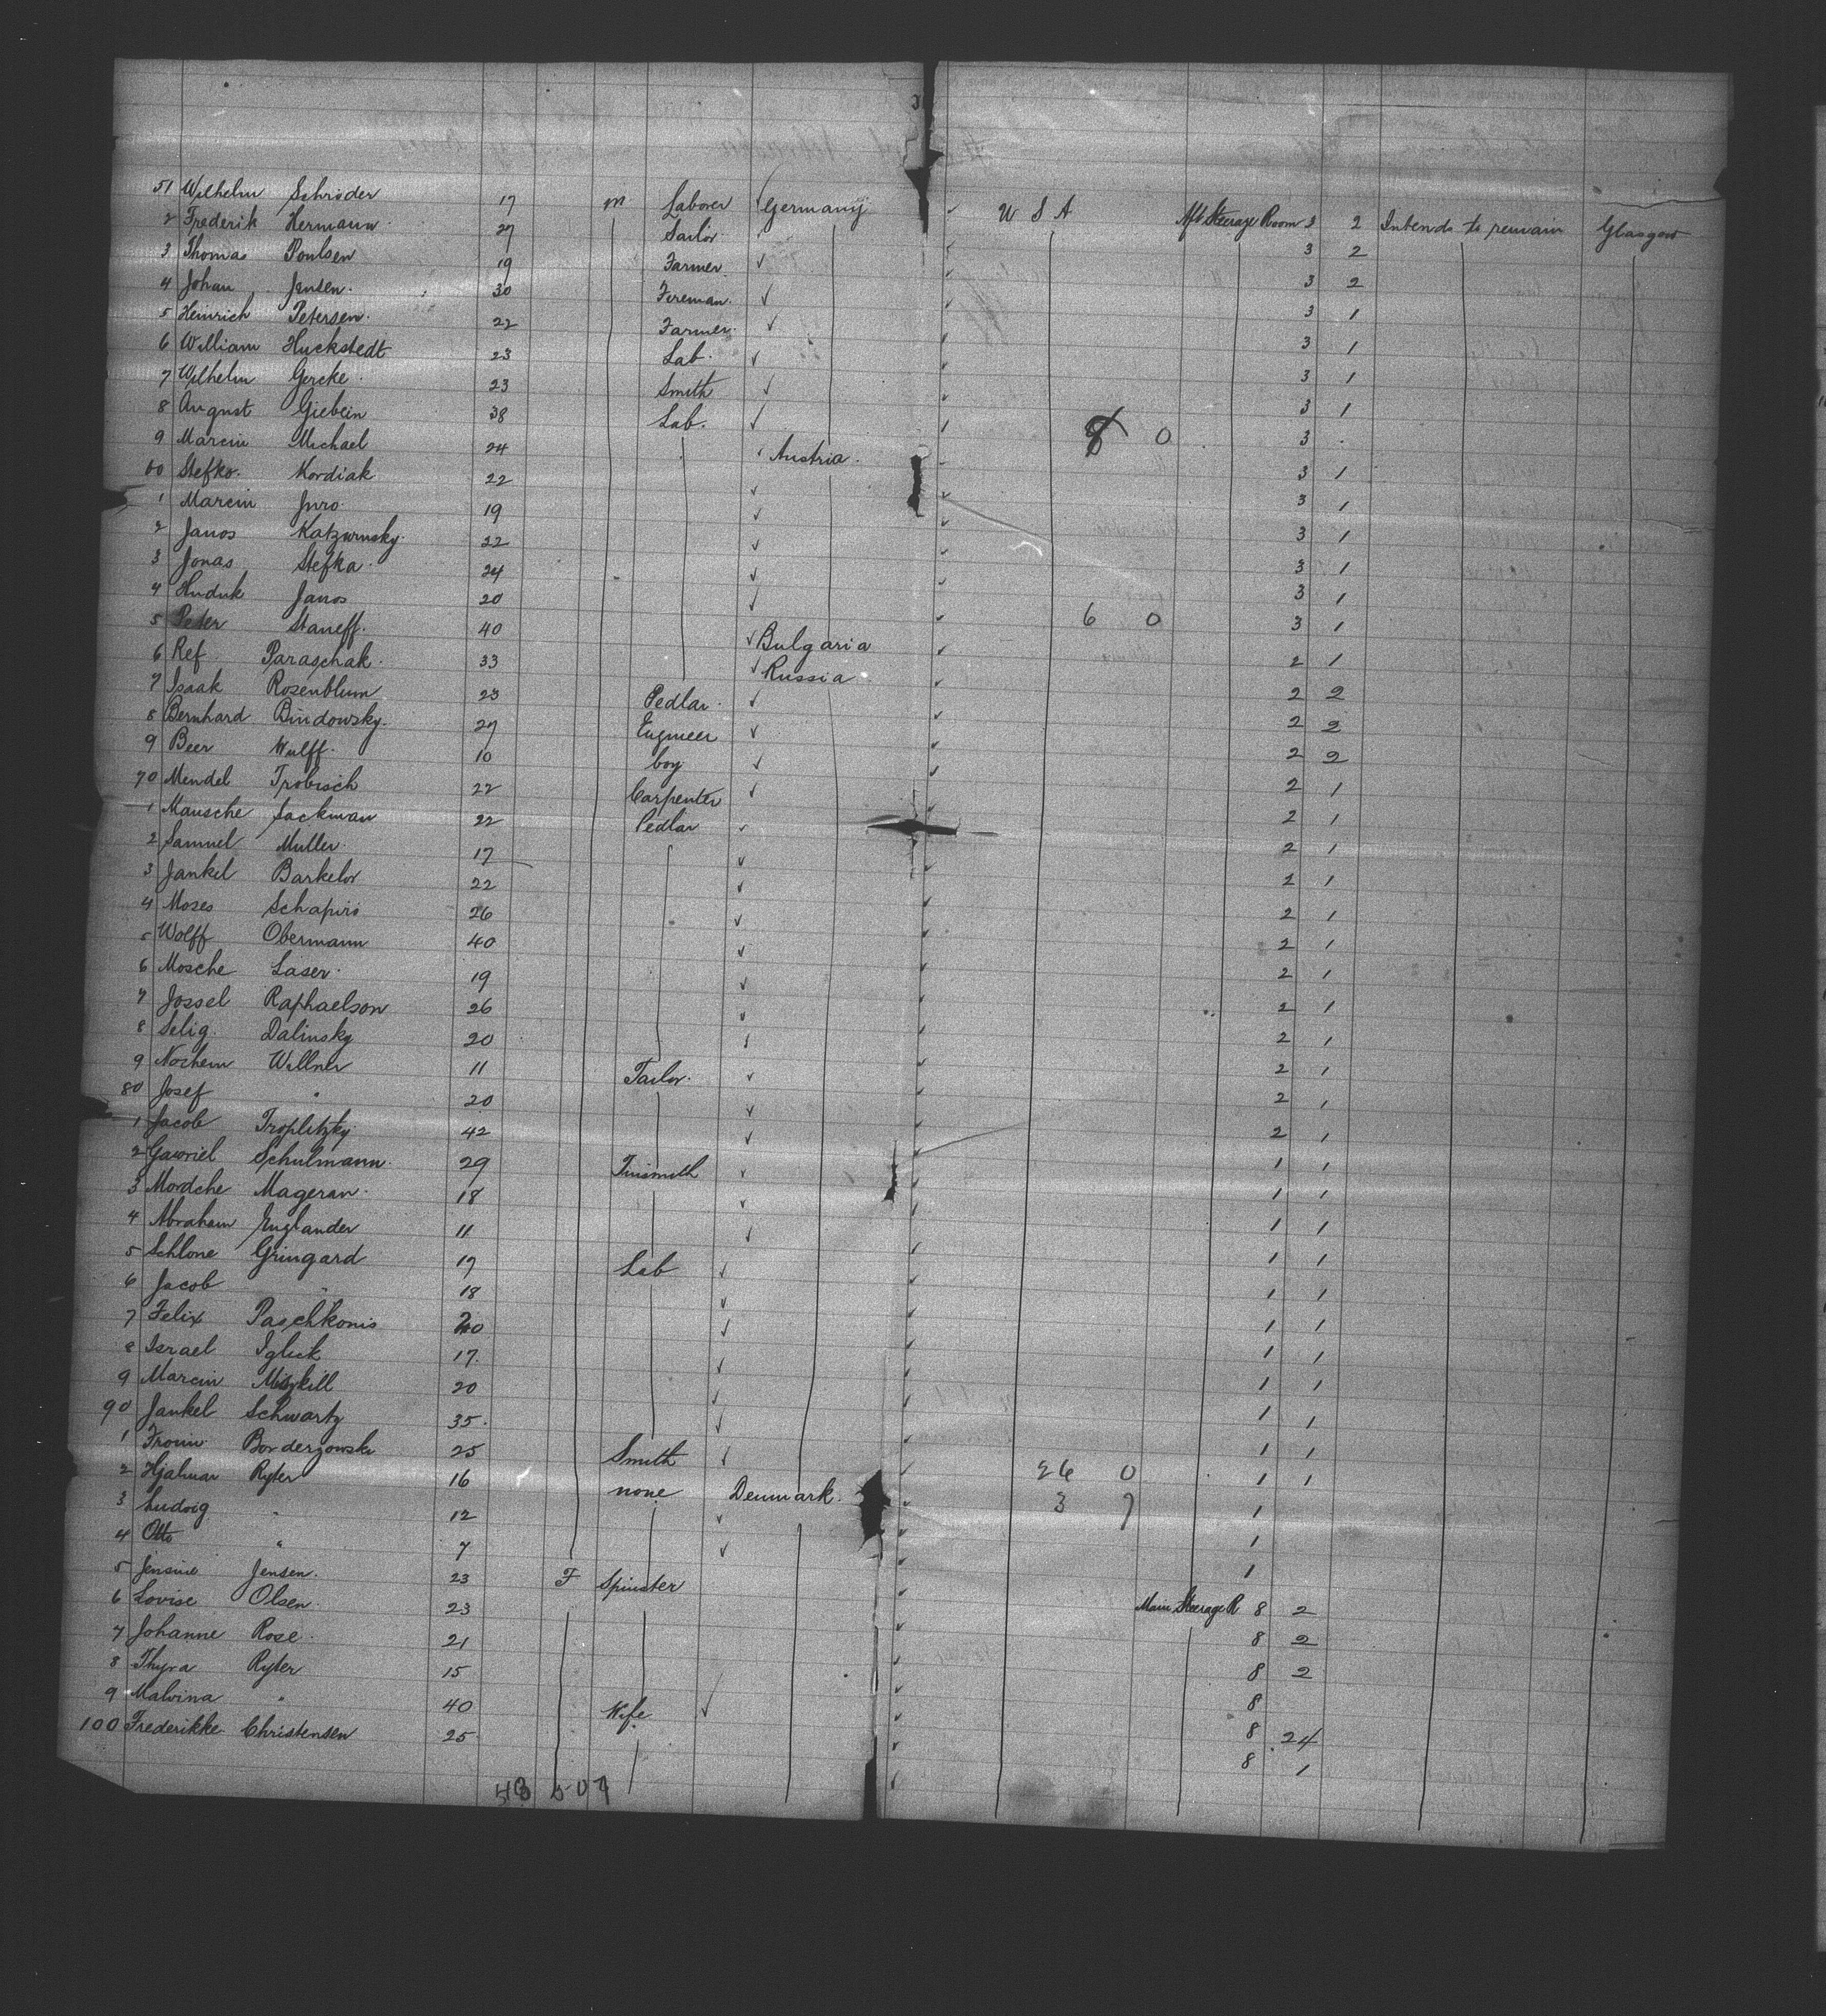 51 Wilhelm Schröder 17 m Laborer Germany U S A Aft Steerage Room 3 2 Intends to remain Glasgow
2 Frederik Hermann 27 Sailor 3 2
3 Thomas Poulsen 19 Farmer 3 2
4 Johan Jensen 30 Fireman 3 1
5 Heinrich Petersen 22 Farmer 3 1
6 William Huckstedt 23 Lab. 3 1
7 Wilhelm Gercke 23 Smith 3 1
8 August Giebein 38 Lab. 8 0 3
9 Marcin Michael 24 Austria 3 1
60 Stefko Kordiak 22 3 1
1 Marcin Juro 19 3 1
2 Janos 22 3 1
3 Jonas Stefka 24 3 1
4 Huduk Janos 20 6 0 3 1
5 Peter Staneff 40 Bulgaria 2 1
6 Ref Paraschak 33 Russia 2 2
7 Isaak Rosenblum 23 Pedlar 2 2
8 Bernhard Bindowsky 27 Engineer 2 2
9 Beer Wulff 10 boy 2 1
70 Mendel Trobisch 22 Carpenter 2 1
1 Mausche Sackman 22 Pedlar 2 1
2 Samuel Muller 17 2 1
3 Jankel Barkelor 22 2 1
4 Moses Schapiro 26 2 1
5 Wolff Obermann 40 2 1
6 Mosche Laser 19 2 1
7 Jossel Raphaelson 26 2 1
8 Selig Dalinsky 20 2 1
9 Nochem Willner 11 Tailor 2 1
80 Josef " 20 2 1
1 Jacob Troplitzky 42 1 1
2 Gawriel Schulmann 29 Tinsmith 1 1
3 Mordche Mageran 18 1 1
4 Abraham Englander 11 1 1
5 Schlone Gringard 17 Lab 1 1
6 Jacob " 18 1 1
7 Felix Paschkonis 20 1 1
8 Israel Iglick 17 1 1
9 Marcin 20 1 1
90 Jankel Schwartz 35 1 1
1 Froim 25 Smith 26 0 1 1
2 Hjalmar Ryter 16 none Denmark 3 7 1
3 Ludvig " 12 1
4 Otto " 7 1
5 Jensine Jensen 23 F Spinster Main Steerage R 8 2
6 Lovise Olsen 23 8 2
7 Johanne Rose 21 8 2
8 Thyra Ryter 15 8
9 Malvina " 40 Wife 8 24
100 Frederikke Christensen 25 8 1